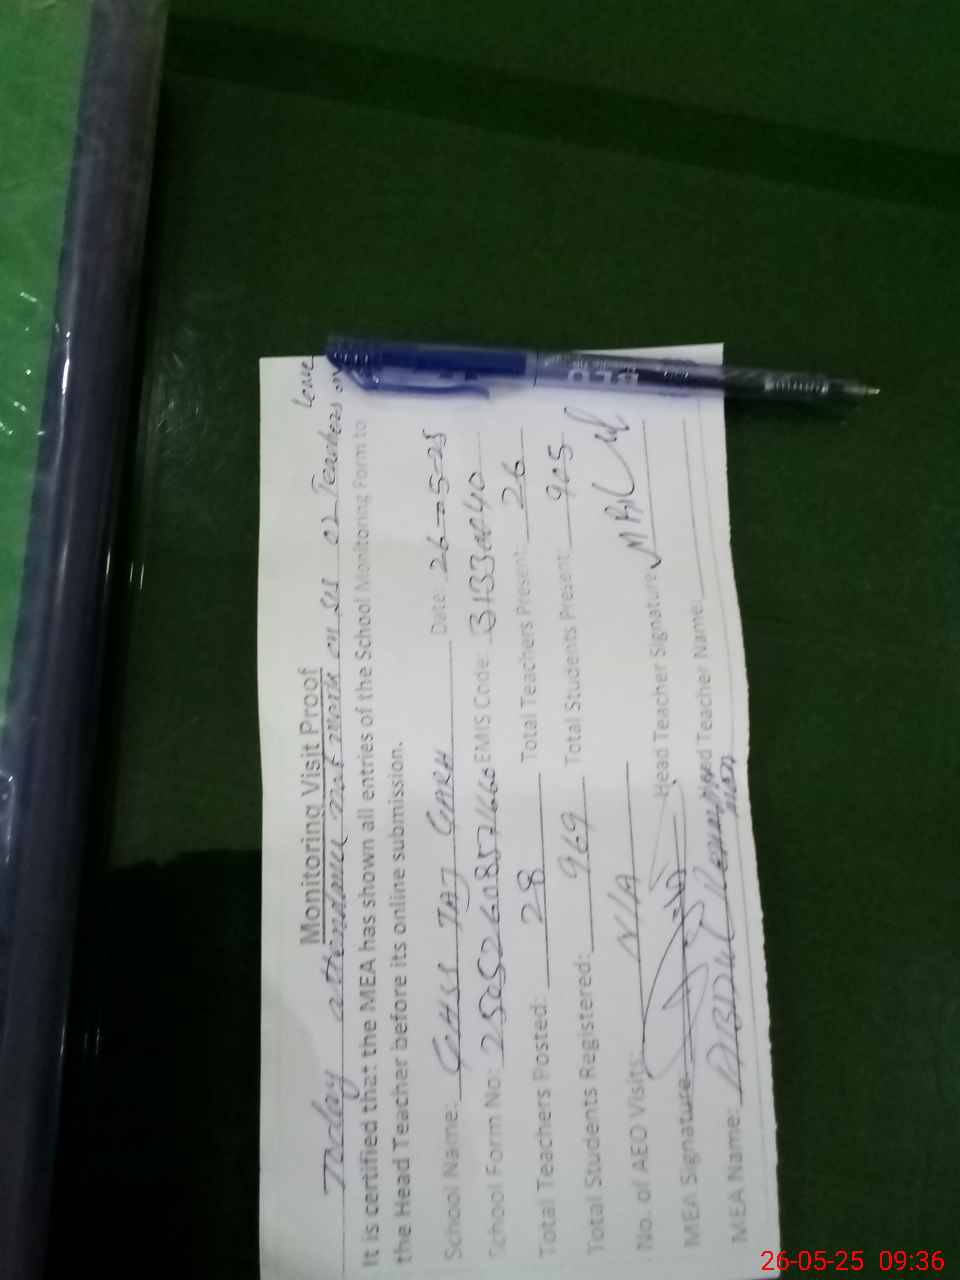 Monitoring Visit Proof
Today attendance not mark on SIS 02 Teachers on leave
It is certified that the MEA has shown all entries of the School Monitoring Form to
the Head Teacher before its online submission.
School Name: GHSS TAJ GARH Date: 26-5-25
School Form No: EMIS Code:
Total Teachers Posted: 28 Total Teachers Present: 26
Total Students Registered: 969 Total Students Present: 905
No. of AEO Visits: N/A Head Teacher Signature
MEA Signature Head Teacher Name:
MEA Name: ABDUL
26-05-25 09:36